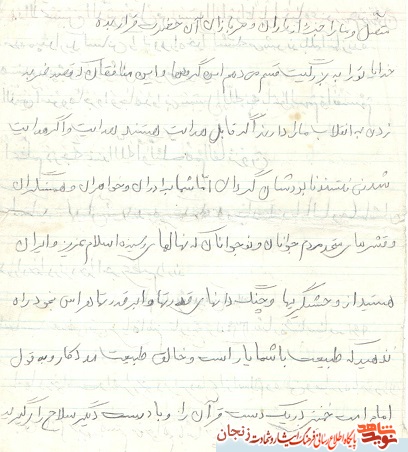 متصل و ما را جزء از یاران و سربازان آن حضرت قرار بده
خدایا تو را به بزرگیت قسم می دهم این گروهها و این منافقان که قصد ضربه
زدن به انقلاب ما را دارند اگر قابل هدایت هستند هدایت و اگر هدایت
شدنی نیستند نابودشان گردان اما شما برادران و خواهران و همسنگران
و قشرهای مردم جوانان و نوجوانان که نهالهای اسلام عزیز و ایران
هستید از وحشیگریها و چنگ دانهای قدرتها و ابرقدرتها هراس بخود راه
ندهید که طبیعت با شما یار است و خالق طبیعت مددکار و به قول
امام امت خمینی در یک دست قرآن را و با دست دگر سلاح را برگیرید
نوید شاهد
پایگاه اطلاع رسانی فرهنگ ایثار و شهادت زنجان